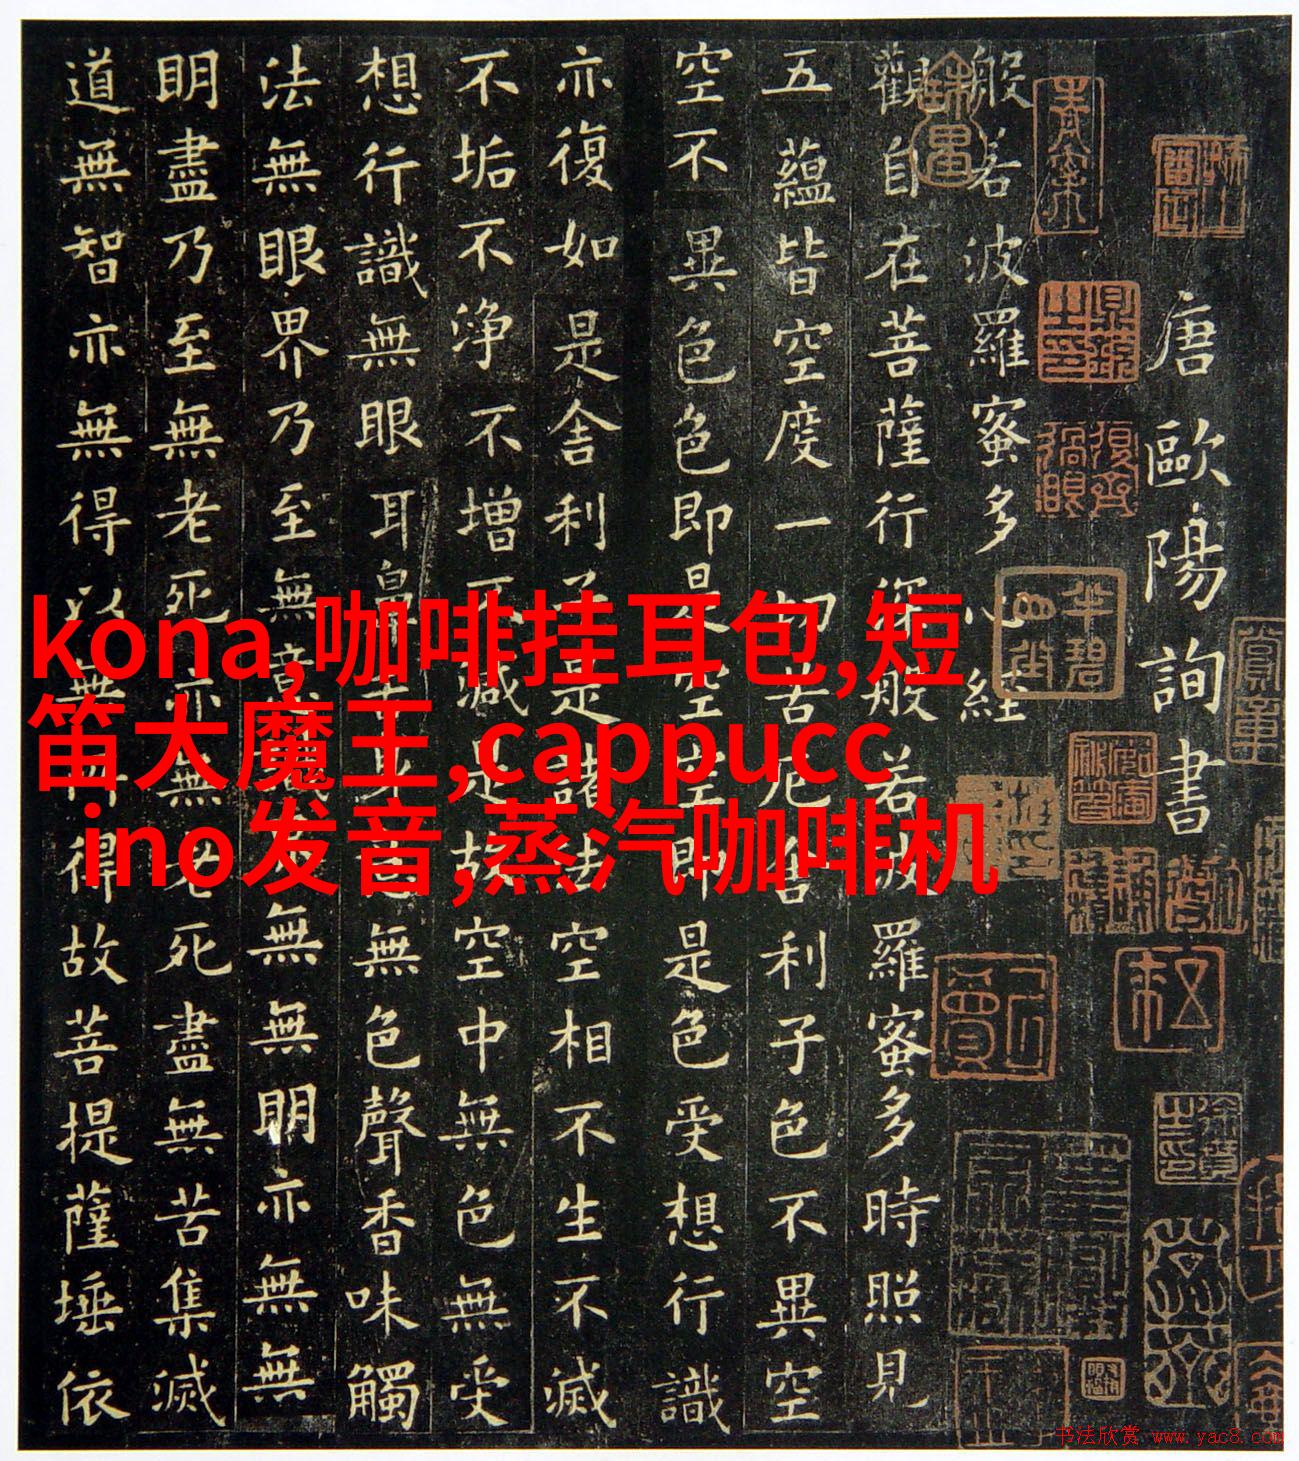 唐歐陽詢書
般若波羅蜜多心經
觀自在菩薩行深般若波羅蜜多時照見
五蘊皆空度一切苦厄舍利子色不異空
空不異色色即是空空即是色受想行識
亦復如是舍利子是諸法空相不生不滅
不垢不淨不增不減是故空中無色無受
想行識無眼耳鼻舌身意無色聲香味觸
法無眼界乃至無意識界無無明亦無無
明盡乃至無老死亦無老死盡無苦集滅
道無智亦無得以無所得故菩提薩埵依
kona,咖啡挂耳包,短
笛大魔王,cappucc
ino发音,蒸汽咖啡机
书法欣赏 www.yac8.com